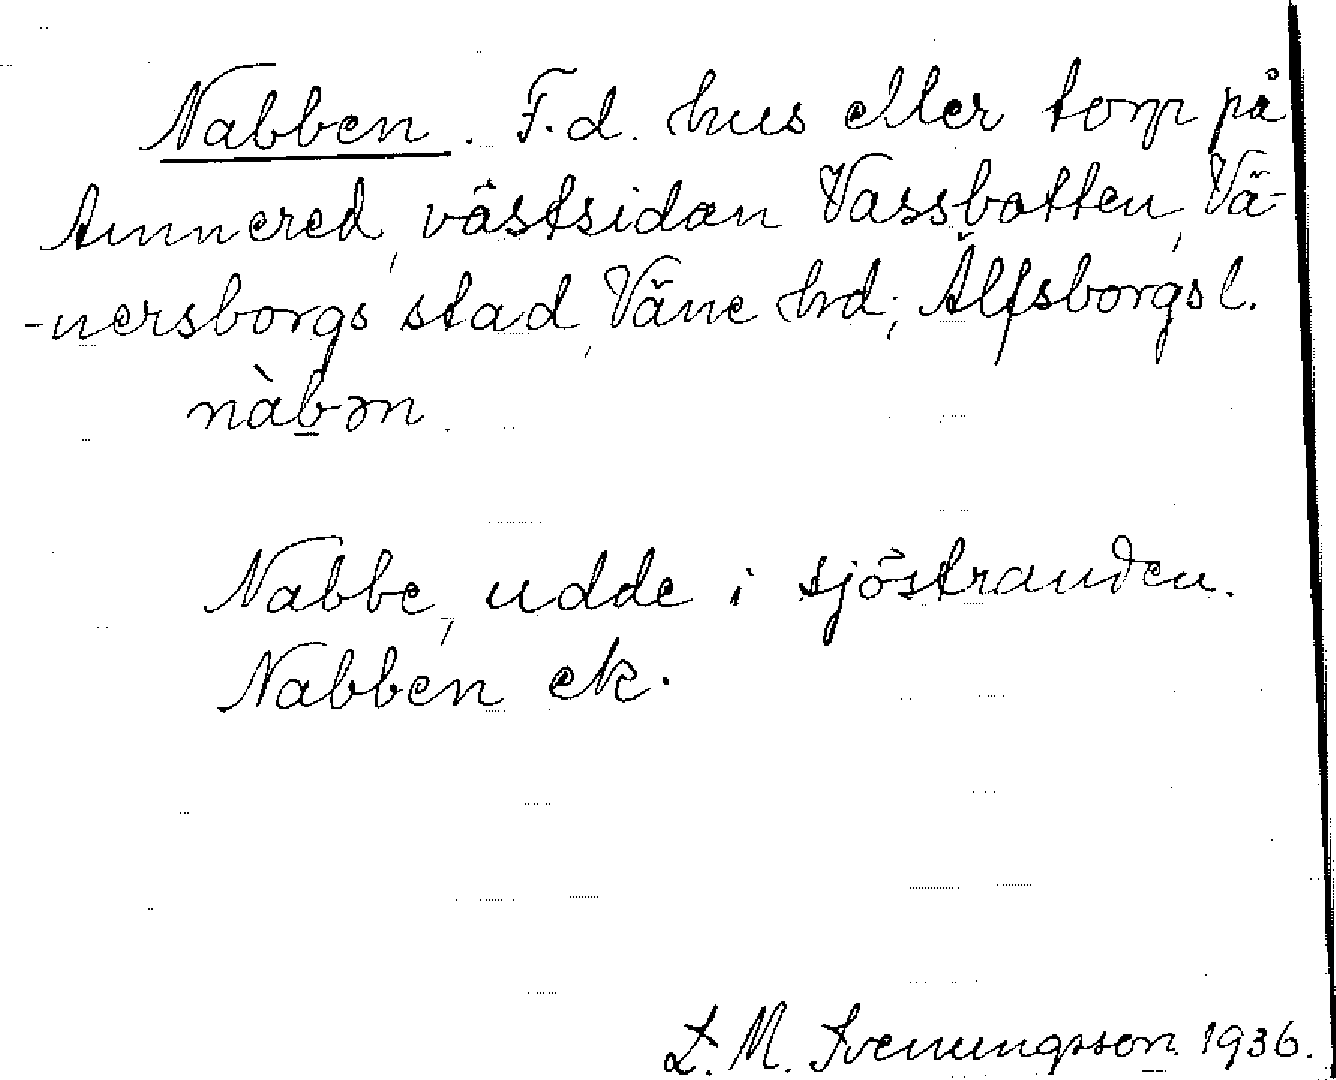 Nabben. F.d. hus eller torp på
Annered, västsidan Vassbotten, Vä-
-nersborgs stad, Väne hd; Älfsborgs l.
nàb̲ən.
Nabbe, udde i sjöstranden.
Nabben ek.
L. M. Svenungsson 1936.